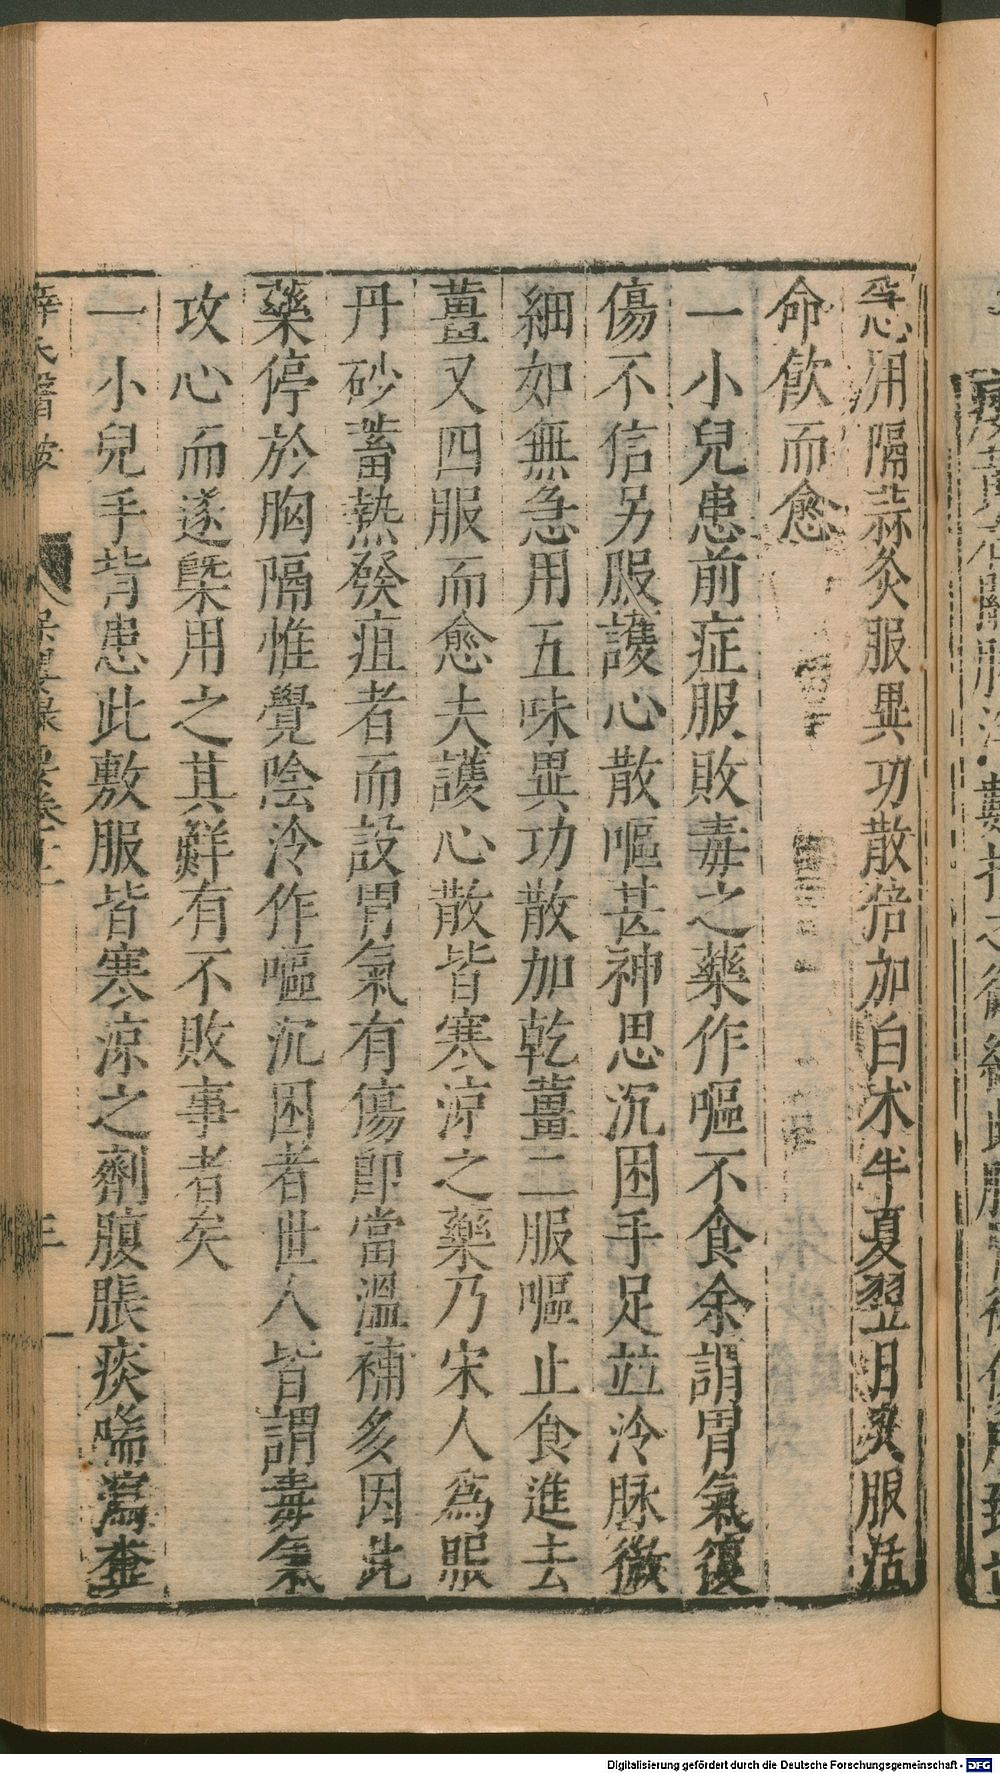 急用隔蒜灸服異功散倍加白朮半夏翌日爽服活
命飲而愈
一小兒患前症服敗毒之藥作嘔不食余謂胃氣復
傷不信另服護心散嘔甚神思沉困手足並冷脉微
細如無急用五味異功散加乾薑二服嘔止食進去
薑又四服而愈夫護心散皆寒涼之藥乃宋人為服
丹砂蓄熱發疽者而設胃氣有傷即當溫補多因此
藥停於胸隔惟覺陰冷作嘔沉困者世人皆謂毒氣
攻心而遂槩用之其鮮有不敗事者矣
一小兒手背患此敷服皆寒涼之劑腹脹痰喘瀉
薛氏醫按
三
Digitalisierung gefördert durch die Deutsche Forschungsgemeinschaft - DFG